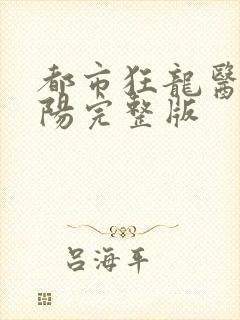 都市狂龍醫
陽完整版
吕海平